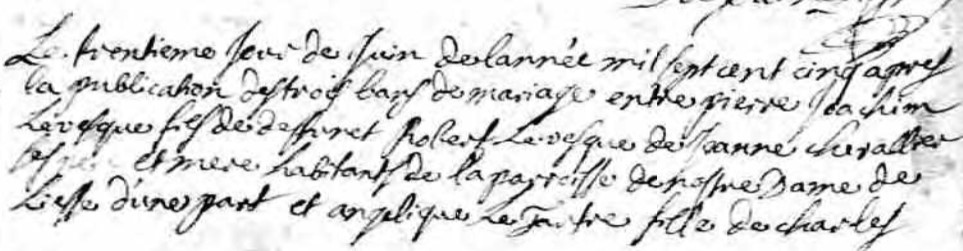 Le trentieme Jour de Juin de lannée mil sept cent cinq apres
la publication des trois bans de mariage entre pierre Joachim
Levesque fils de deffunct Robert Levesque de Jeanne chevallier
ses et mere habitants de la parroisse de nostre Dame de
Liesse d'une part et angelique Le Tartre fille de charles